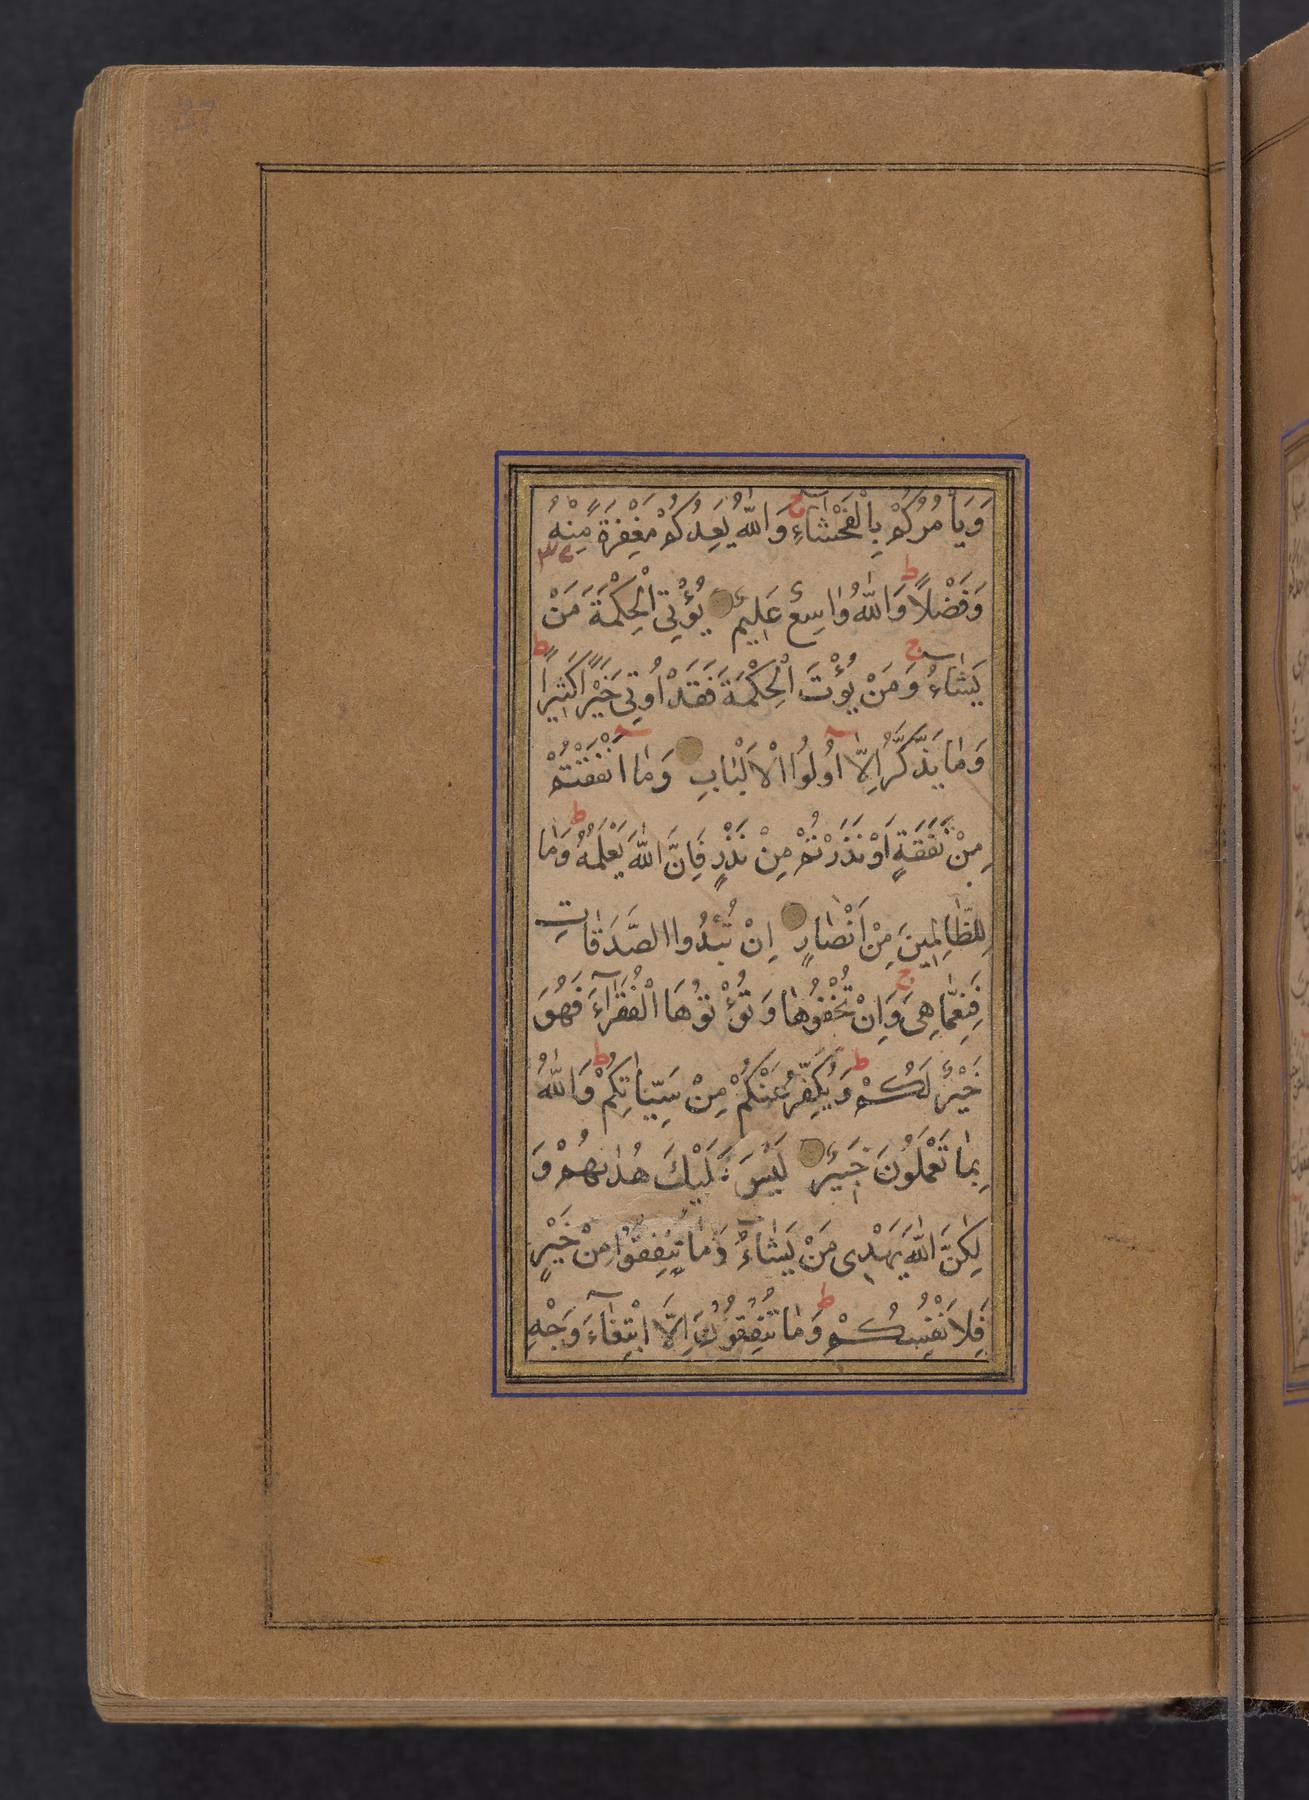 37
وَيَأْمُرُكُمْ بِالْفَحْشَاءِ ج وَاللّٰهُ يَعِدُكُمْ مَغْفِرَةً مِنْهُ
وَفَضْلًا ط وَاللّٰهُ وٰاسِعٌ عَلِيمٌ يُؤْتِي الْحِكْمَةَ مَنْ
يَشٰاءُ ج وَمَنْ يُؤْتَ الْحِكْمَةَ فَقَدْ اُوتِيَ خَيْرًا كَثِيرًا ط
وَمٰا يَذَّكَّرُ اِلّٰا اُولُوا الْاَلْبٰابِ وَمٰا اَنْفَقْتُمْ
مِنْ نَفَقَةٍ اَوْ نَذَرْتُمْ مِنْ نَذْرٍ فَاِنَّ اللّٰهَ يَعْلَمُهُ ط وَمٰا
لِلظّٰالِمِينَ مِنْ اَنْصٰارٍ اِنْ تُبْدُوا الصَّدَقٰاتِ
فَنِعِمّٰا هِيَ ج وَاِنْ تُخْفُوهٰا وَتُؤْتُوهَا الْفُقَرٰآءَ فَهُوَ
خَيْرٌ لَكُمْ ط وَيُكَفِّرُ عَنْكُمْ مِنْ سَيِّئٰاتِكُمْ ط وَاللّٰهُ
بِمٰا تَعْمَلُونَ خَبِيرٌ لَيْسَ عَلَيْكَ هُدٰىهُمْ وَ
لٰكِنَّ اللّٰهَ يَهْدِي مَنْ يَشٰاءُ وَمٰا تُنْفِقُوا مِنْ خَيْرٍ
فَلِاَنْفُسِكُمْ ط وَمٰا تُنْفِقُونَ اِلَّا ابْتِغٰآءَ وَجْهِ